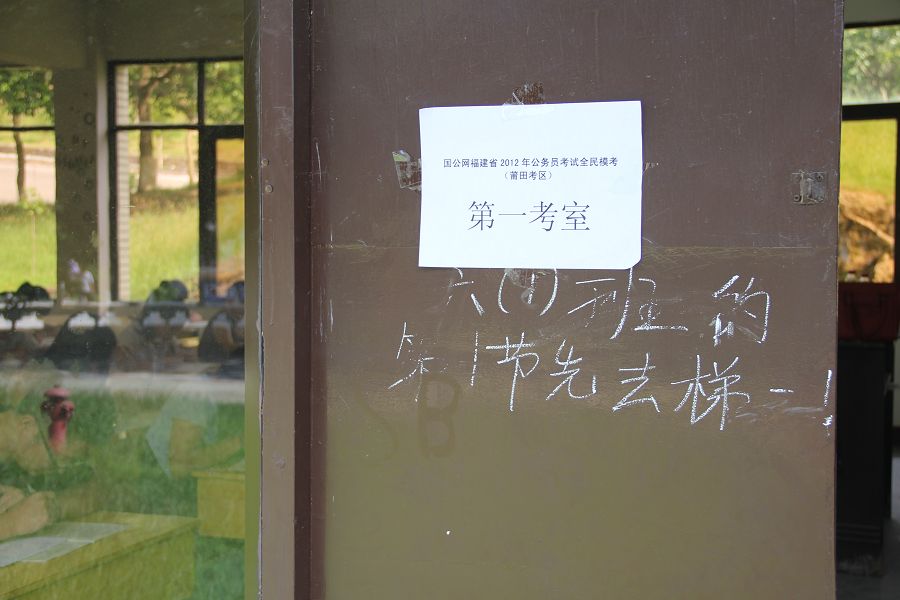 国公网福建省2012年公务员考试全民模考
（莆田考区）
第一考室
六(1)班的
第1节先去梯一!